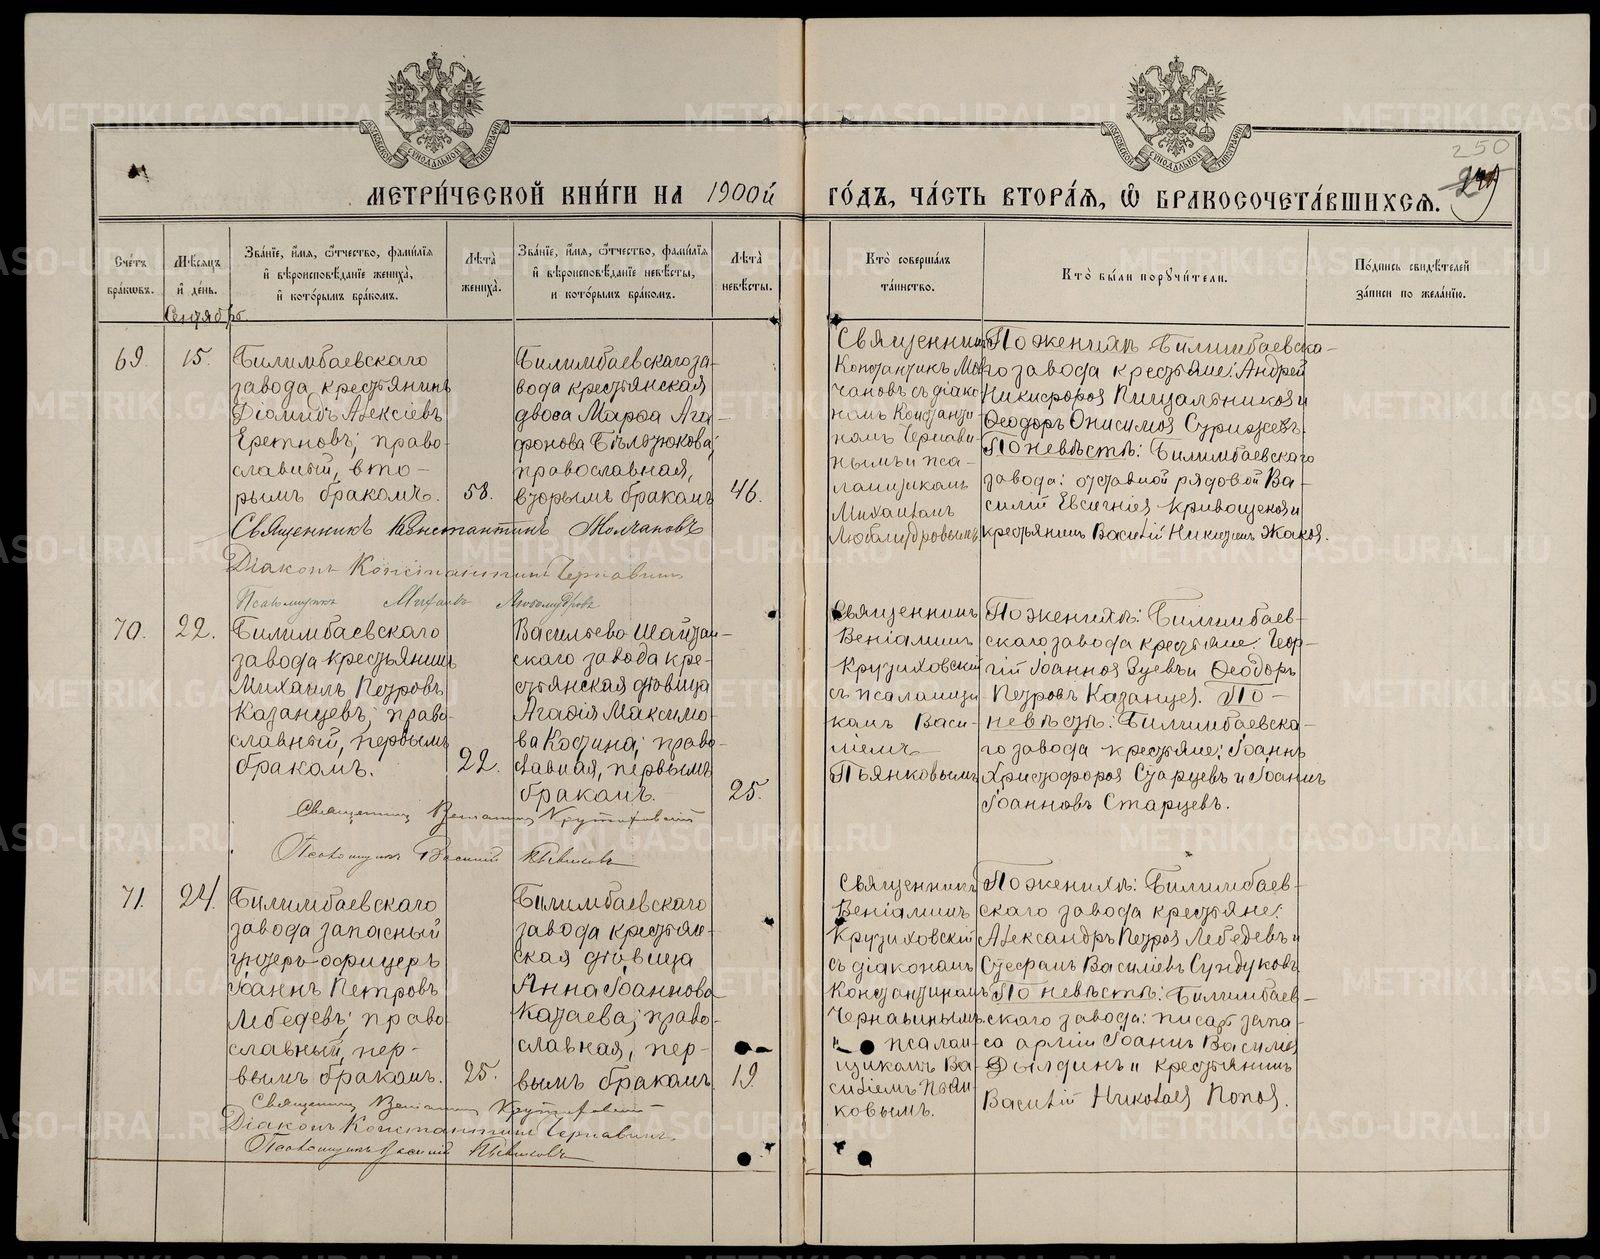 МОСКОВСКОЙ СѴНОДАЛЬНОЙ ТИПОГРАФІИ
МОСКОВСКОЙ СѴНОДАЛЬНОЙ ТИПОГРАФІИ
250
249
МЕТРИ́ЧЕСКОЙ КНИ́ГИ НА 1900й ГО́ДЪ, ЧА́СТЬ ВТОРА́Я, Ѽ БРАКОСОЧЕТА́ВШИХСЯ.
Сче́тъ
бра́кѡвъ.
Мѣ́сяцъ
и҆ де́нь.
Зва́нїе, и҆́мя, ѻ҆́тчество, фами́лїя
и҆ вѣроисповѣ́данїе жениха̀,
и҆ кото́рымъ бра́комъ.
Лѣ́та
жениха̀.
Зва́нїе, и҆́мя, ѻ҆́тчество, фами́лїя
и҆ вѣроисповѣ́данїе невѣ́сты,
и кото́рымъ бра́комъ.
Лѣ́та
невѣ́сты.
Кто̀ соверша́лъ
та́инство.
Кто̀ бы́ли порꙋчи́тели.
По́дпись свидѣ́телей
за́писи по жела́нїю.
Сентябрь
69.
15.
Билимбаевскаго
завода крестьянинъ
Діомидъ Алексіевъ
Еретновъ; право-
славный, вто-
рымъ бракомъ.
58.
Билимбаевскаго за-
вода крестьянская
вдова Марѳа Ага-
фонова
православная,
вторымъ бракомъ
46.
Священникъ
Константинъ Мол-
чановъ съ діако-
номъ Константи-
номъ Чернави-
нымъ и пса-
ломщикомъ
Михаиломъ
Любомудровымъ
По женихѣ Билимбаевска-
го завода крестьяне: Андрей
Никифоровъ Пищальниковъ и
Ѳеодоръ Онисимовъ Стрижевъ.
По невѣстѣ: Билимбаевскаго
завода: отставной рядовой Ва-
силій Евсигніевъ Кривощековъ и
крестьянинъ Василій Никитинъ Жаковъ.
Священникъ Константинъ Молчановъ
Діаконъ Константинъ Чернавинъ
Псаломщикъ Михаилъ Любомудровъ
70.
22.
Билимбаевскаго
завода крестьянинъ
Михаилъ Петровъ
Казанцевъ; право-
славный, первымъ
бракомъ.
22.
Васильево Шайтан-
скаго завода кре-
стьянская дѣвица
Агафія Максимо-
ва Костина; право-
славная, первымъ
бракомъ.
25.
Священникъ
Веніаминъ
Крутиховскій
съ псаломщи-
комъ Васи-
ліемъ
Пьянковымъ
По женихѣ: Билимбаев-
скаго завода крестьяне: Геор-
гій Іоанновъ Зуевъ и Ѳеодоръ
Петровъ Казанцевъ. По
невѣстѣ: Билимбаевска-
го завода крестьяне: Іоаннъ
Христофоровъ Старцевъ и Іоаннъ
Іоанновъ Старцевъ.
Священникъ Веніаминъ Крутиховскій
Псаломщикъ Василій Пьянковъ
71.
24.
Билимбаевскаго
завода запасный
унтеръ-офицеръ
Іоаннъ Петровъ
Лебедевъ; право-
славный, пер-
вымъ бракомъ.
25.
Билимбаевскаго
завода крестьян-
ская дѣвица
Анна Іоаннова
Катаева; право-
славная, пер-
вымъ бракомъ.
19.
Священникъ
Веніаминъ
Крутиховскій
съ діакономъ
Константиномъ
Чернавинымъ
и псалом-
щикомъ Ва-
силіемъ Пьян-
ковымъ.
По женихѣ: Билимбаев-
скаго завода крестьяне:
Александръ Петровъ Лебедевъ и
Стефанъ Василіевъ Сундуковъ
По невѣстѣ: Билимбаев-
скаго завода: писарь запа-
са арміи Іоаннъ Василіевъ
Дылдинъ и крестьянинъ
Василій Николаевъ Поповъ.
Священникъ Веніаминъ Крутиховскій
Діаконъ Константинъ Чернавинъ.
Псаломщикъ Василій Пьянковъ